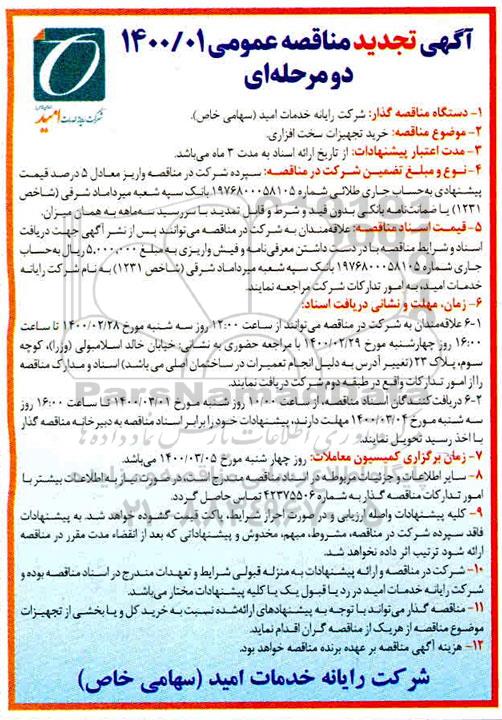 آگهی تجدید مناقصه عمومی ۱۴۰۰/۰۱
دو مرحله‌ای
شرکت رایانه خدمات امید
۱- دستگاه مناقصه گذار: شرکت رایانه خدمات امید (سهامی خاص).
۲- موضوع مناقصه: خرید تجهیزات سخت افزاری.
۳- مدت اعتبار پیشنهادات: از تاریخ ارائه اسناد به مدت ۳ ماه می‌باشد.
۴- نوع و مبلغ تضمین شرکت در مناقصه: سپرده شرکت در مناقصه واریز معادل ۵ درصد قیمت
پیشنهادی به‌حساب جاری طلائی شماره ۱۹۷۶۸۰۰۰۵۸۱۰۵ بانک سپه شعبه میرداماد شرقی (شاخص
۱۲۳۱) یا ضمانتنامه بانکی بدون قید و شرط و قابل تمدید با سررسید سه‌ماهه به همان میزان.
۵- قیمت اسناد مناقصه: علاقه‌مندان به شرکت در مناقصه می‌توانند پس از نشر آگهی جهت دریافت
اسناد و شرایط مناقصه با در دست داشتن معرفی‌نامه و فیش واریزی به مبلغ ۵,۰۰۰,۰۰۰ ریال به‌حساب
جاری شماره ۱۹۷۶۸۰۰۰۵۸۱۰۵ بانک سپه شعبه میرداماد شرقی (شاخص ۱۲۳۱) به نام شرکت رایانه
خدمات امید، به امور تدارکات شرکت مراجعه نمایند.
۶- زمان، مهلت و نشانی دریافت اسناد:
۶-۱ علاقه‌مندان به شرکت در مناقصه می‌توانند از ساعت ۱۲:۰۰ روز سه شنبه مورخ ۱۴۰۰/۰۲/۲۸ تا ساعت
۱۶:۰۰ روز چهارشنبه مورخ ۱۴۰۰/۰۲/۲۹ با مراجعه حضوری به نشانی: خیابان خالد اسلامبولی (وزرا)، کوچه
سوم، پلاک ۲۳ (تغییر آدرس به دلیل انجام تعمیرات در ساختمان اصلی می باشد) اسناد و مدارک مناقصه
را از امور تدارکات واقع در طبقه دوم شرکت دریافت نمایند.
۶-۲ دریافت کنندگان اسناد مناقصه، از ساعت ۱۰:۰۰ روز شنبه مورخ ۱۴۰۰/۰۳/۰۱ تا ساعت ۱۶:۰۰ روز
سه شنبه مورخ ۱۴۰۰/۰۳/۰۴ مهلت دارند، پیشنهادات خود را برابر اسناد مناقصه به دبیرخانه مناقصه گذار
با اخذ رسید تحویل نمایند.
۷- زمان برگزاری کمیسیون معاملات: روز چهار شنبه مورخ ۱۴۰۰/۰۳/۰۵ می‌باشد.
۸- سایر اطلاعات و جزئیات مربوطه در اسناد مناقصه مندرج است، در صورت نیاز به اطلاعات بیشتر با
امور تدارکات مناقصه گذار به شماره ۴۲۳۷۵۵۰۶ تماس حاصل گردد.
۹- کلیه پیشنهادات واصله ارزیابی و در صورت احراز شرایط، پاکت قیمت گشوده خواهد شد. به پیشنهادات
فاقد سپرده شرکت در مناقصه، مشروط، مبهم، مخدوش و پیشنهاداتی که بعد از انقضاء مدت مقرر در مناقصه
ارائه شود ترتیب اثر داده نخواهد شد.
۱۰- شرکت در مناقصه و ارائه پیشنهادات به منزله قبولی شرایط و تعهدات مندرج در اسناد مناقصه بوده و
شرکت رایانه خدمات امید در رد یا قبول یک یا کلیه پیشنهادات مختار می‌باشد.
۱۱- مناقصه گذار می‌تواند با توجه به پیشنهادهای ارائه‌شده نسبت به خرید کل و یا بخشی از تجهیزات
موضوع مناقصه از هریک از مناقصه گران اقدام نماید.
۱۲- هزینه آگهی مناقصه بر عهده برنده مناقصه خواهد بود.
شرکت رایانه خدمات امید (سهامی خاص)